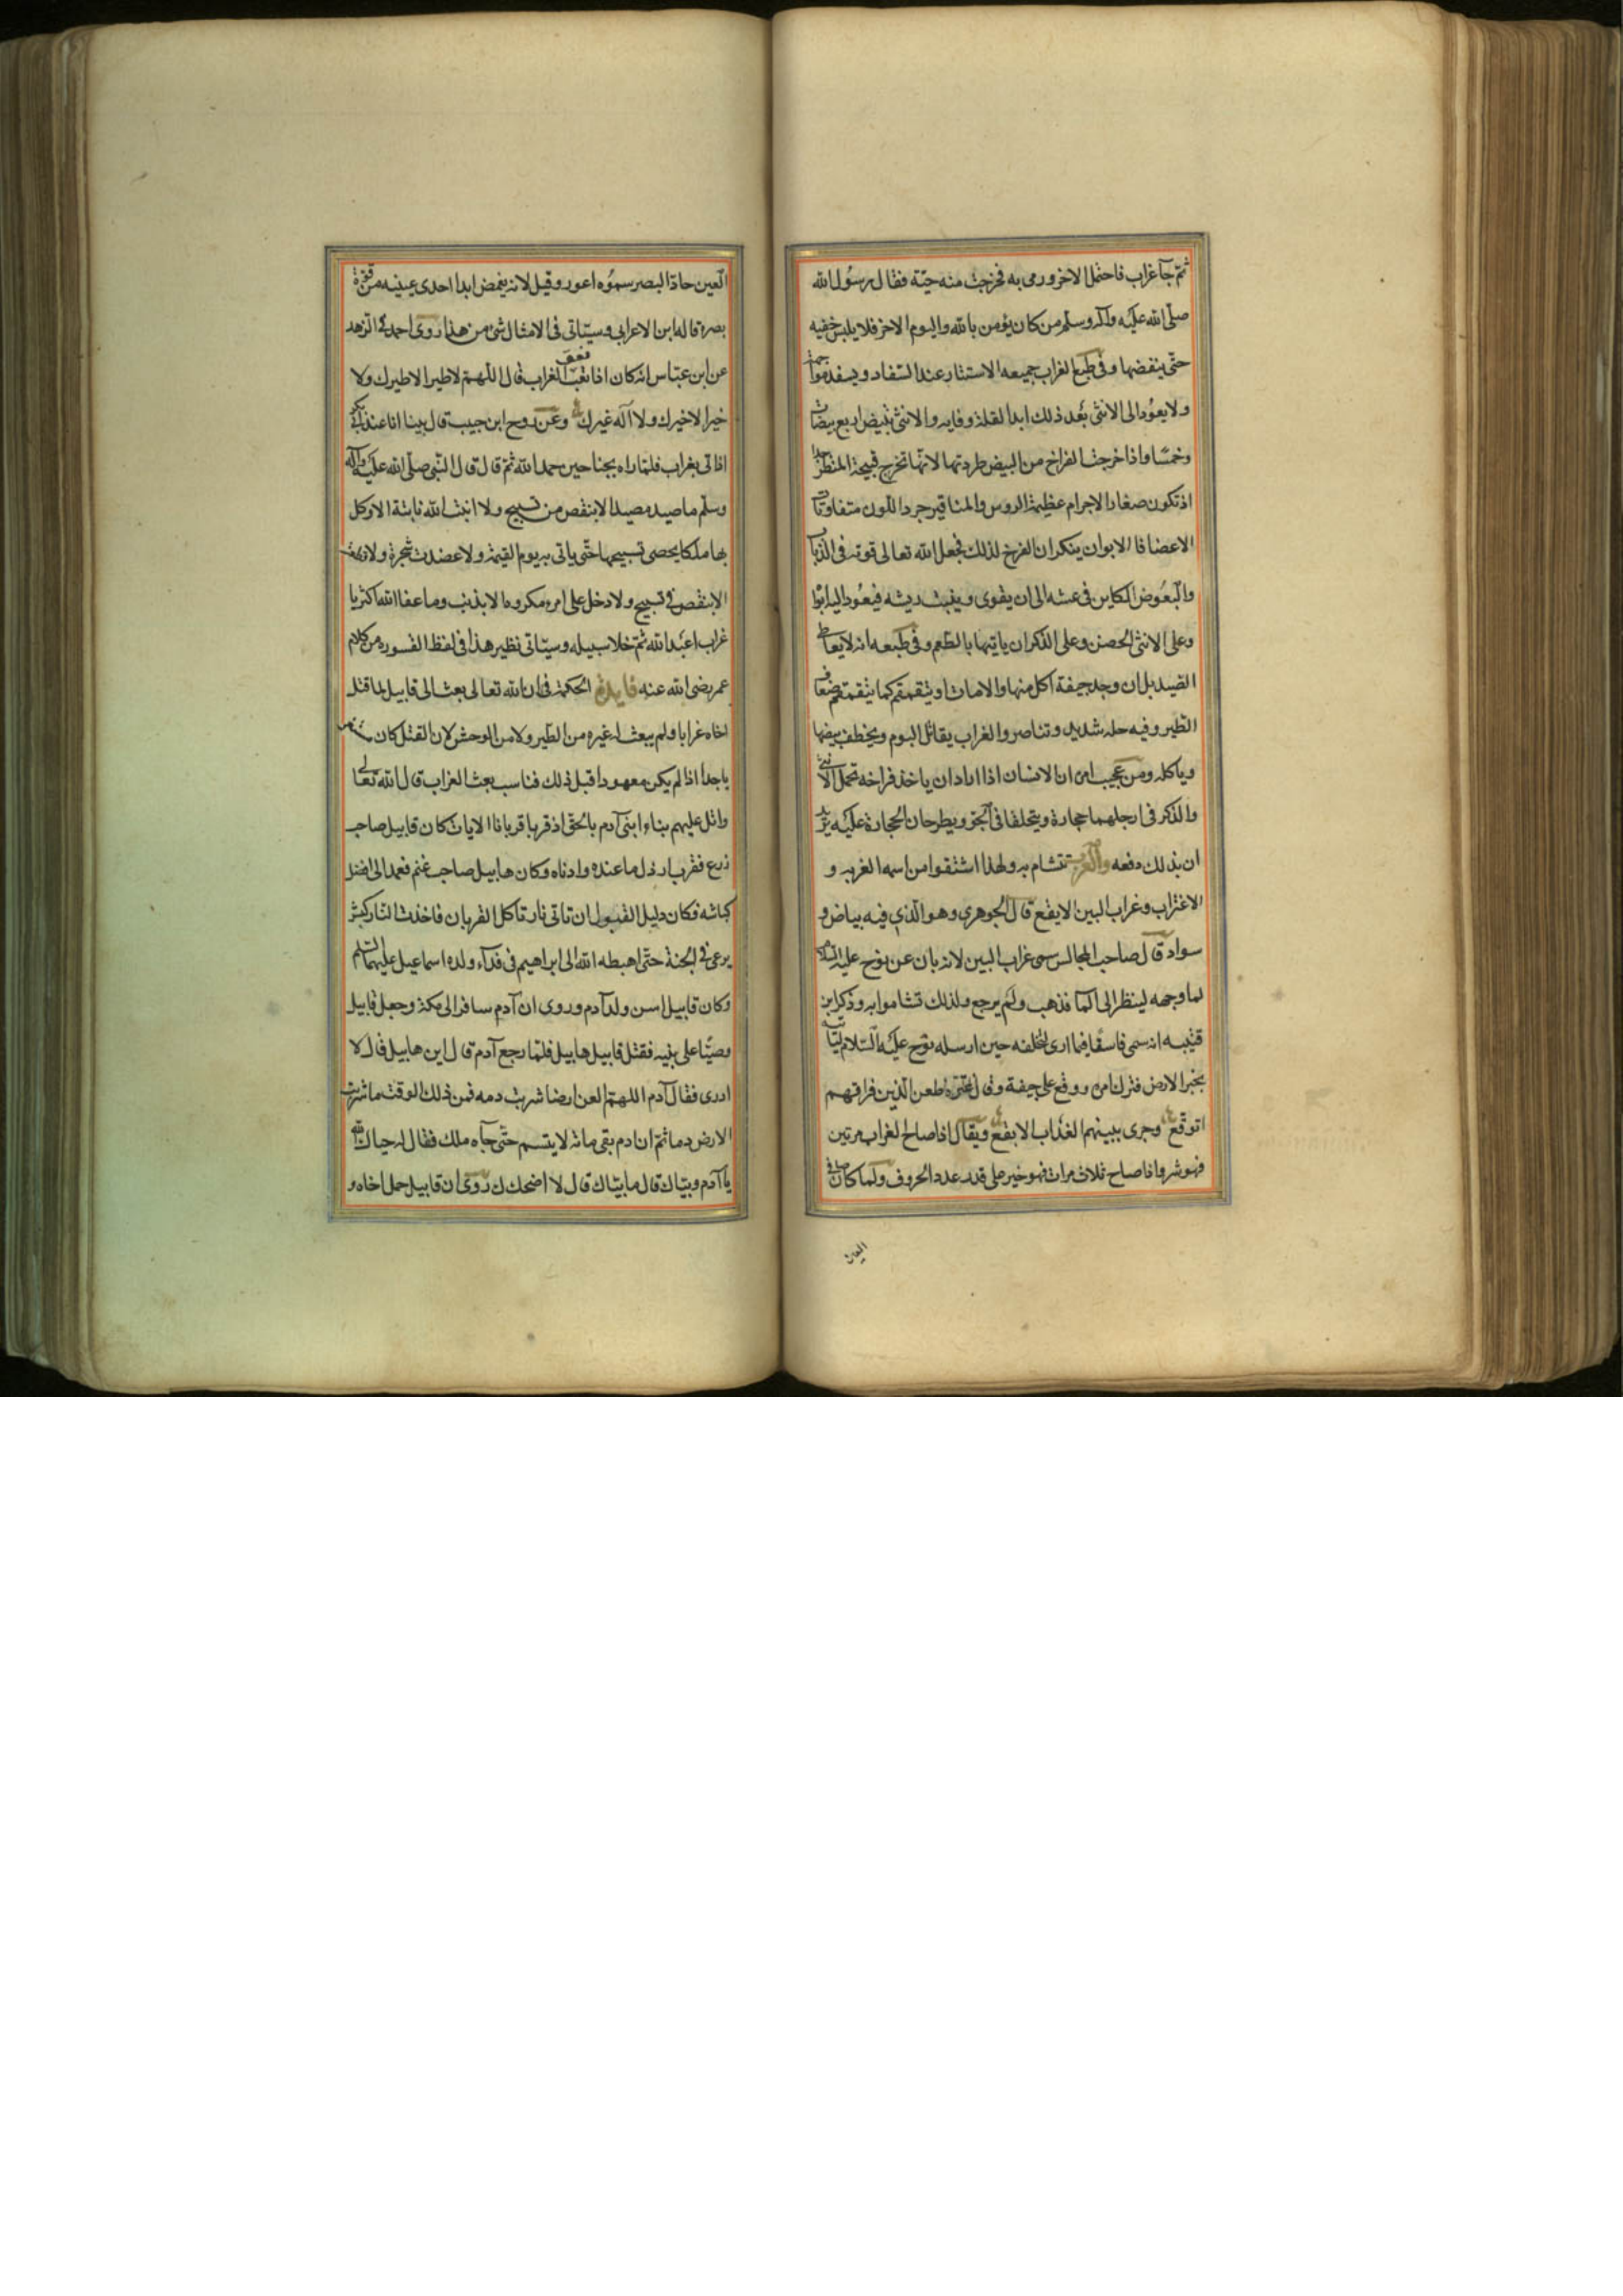 ثم جا غراب فاحتمل الاخر ورمى به فخرجت منه حية فقال رسول الله
صلى الله عليه وآله وسلم من كان يؤمن بالله واليوم الاخر فلا يلبس خفيه
حتى ينفضها وفى طبع الغراب جميعه الاستتار عند السفاد ويسفد مواجهة
ولا يعود الى الانثى بعد ذلك ابدا لقلة وفايه والانثى تبيض اربع بيضات
وخمسا واذا خرجت الفراخ من البيض طردتها لانها تخرج قبيحة المنظر جدا
اذ تكون صغار الاجرام عظيمة الروس والمناقير جرد اللون متفاوتات
الاعضا فالابوان ينكران الفرخ لذلك فجعل الله تعالى قوته فى الذباب
والبعوض الكاين فى عشه الى ان يقوى وينبت ريشه فيعود اليه ابوا
وعلى الانثى الحضن وعلى الذكر ان ياتيها بالطعم وفى طبعه انه لا يتعاطى
الصيد بل ان وجد جيفة اكل منها والا مات او يتقمقم كما يتقمقم ضعاف
الطير وفيه حذر شديد وتناصر والغراب يقاتل البوم ويخطف بيضها
وياكله ومن عجيب امره ان الانسان اذا اراد ان ياخذ فراخه تحمل الانثى
والذكر فى ارجلهما حجارة ويتحلقا فى الجو ويطرحان الحجارة عليه يريد
ان بذلك دفعه والعرب تتشام به ولهذا اشتقوا من اسمه الغربه و
الاغتراب وغراب البين الابقع قال الجوهري وهو الذي فيه بياض و
سواد قال صاحب المجالس سمى غراب البين لانه بان عن نوح عليه السلام
لما وجهه لينظر الى الما فذهب ولم يرجع ولذلك تشاموا به وذكر ابن
قتيبه انه سمى فاسقا فيما ارى لتخلفه حين ارسله نوح عليه السلام لياتيه
بخبر الارض فترك امره ووقع على جيفة وقال عنتره ظعن الذين فراقهم
اتوقع وجرى ببينهم الغداب الابقع ويقال اذا صاح الغراب مرتين
فهو شر واذا صاح ثلاث مرات فهو خير على قدر عدد الحروف ولما كان صافى
العين
العين حاد البصر سموه اعور وقيل لانه يغمض ابدا احدى عينيه من قوة
بصره قاله ابن الاعرابى وسيتاتى فى الامثال شى من هذا روى احمد فى الزهد
عن ابن عباس انه كان اذا نغب نعق الغراب قال اللهم لا طير الا طيرك ولا
خير الا خيرك ولا اله غيرك وعن روح ابن حبيب قال بينا انا عند ابى بكر
اذ اتى بغراب فلما راه بجناحين حمد الله ثم قال قال النبى صلى الله عليه وآله
وسلم ما صيد مصيد الا بنقص من تسبيح ولا انبت الله نابتة الا وكل
بها ملكا يحصى تسبيحها حتى ياتى به يوم القيمة ولا عضدت شجرة ولا
الا بنقص فى تسبيح ولا دخل على امره مكروه الا بذنب وما عفا الله اكثر يا
غراب اعبد الله ثم خلا سبيله وسيتاتى نظير هذا فى لفظ القسوره من كلام
عمر رضى الله عنه فايدة الحكمة فى ان الله تعالى بعث الى قابيل لما قتل
اخاه غرابا ولم يبعث له غيره من الطير ولا من الوحش لان القتل كان
يا جدا اذ لم يكن معهودا قبل ذلك فناسب بعث الغراب قال الله تعالى
واتل عليهم نباء ابنى آدم بالحق اذ قربا قربانا الايات كان قابيل صاحب
زرع فقرب ارذل ما عنده وادناه وكان هابيل صاحب غنم فعمد الى افضل
كباشه فكان دليل القبول ان تاتى نار تاكل القربان فاخذت النار كبش
يرعى فى الجنة حتى اهبطه الله الى ابراهيم فى فداء ولده اسماعيل عليهما السلم
وكان قابيل اسن ولد آدم وروى ان آدم سافر الى مكة وجعل قابيل
وصيا على بنيه فقتل قابيل هابيل فلما رجع آدم قال اين هابيل قال لا
ادرى فقال آدم اللهم العن ارضا شربت دمه فمن ذلك الوقت ما شربت
الارض دما ثم ان ادم بقى ماته لا يتسم حتى جآه ملك فقال له حياك الله
يا آدم وبياك قال ما بياك قال لا اضحكك روى ان قابيل حمل اخاه و